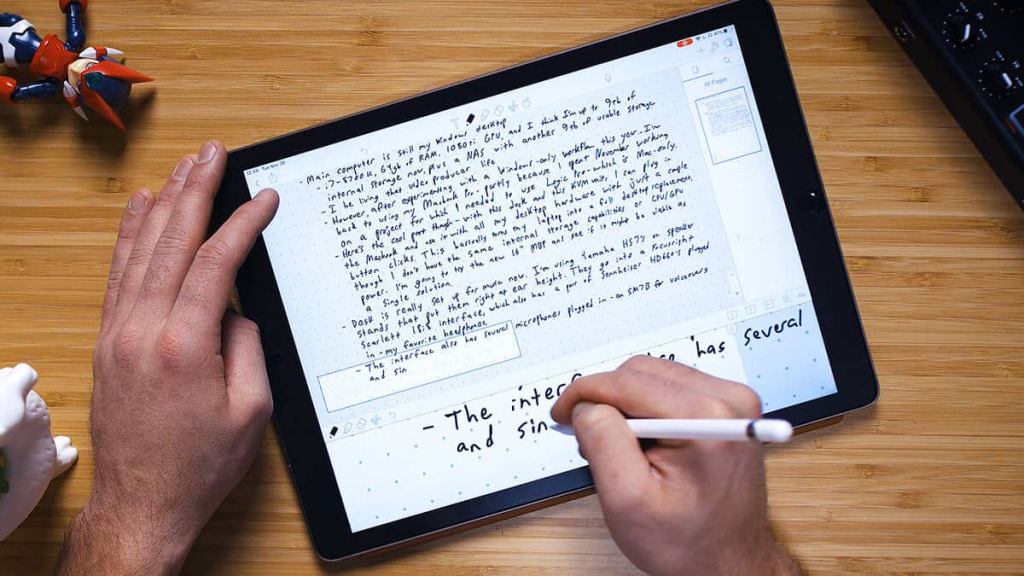 All Pages
- Main computer is still my Windows desktop
- i7-8700K, 64gb of RAM, 1080ti GPU, and I think I'm up to 9tb of
internal storage now, plus a NAS with another 9tb of usable storage
- I be living that video producer life.
- However, after experimenting with a Windows-only workflow this year, I'm
back to using my Macbook Pro, partly because I spent November working
on a project for which I needed to use Logic Pro - which is Mac-only.
- Here's the cool part though - with this dock and my KVM switch, I can plug in
the Macbook and use it with all my desktop hardware with just a couple
button clicks. This is basically my laptop into a full desktop replacement
though I don't have the same internal storage capabilities or CPU/GPU
power. I'm going to try the new 16" MBP and see if it might be viable as
a single solution.
- Desk is really set up for music now. I'm using Yamaha HS7s speaker
stands that put them right at ear height. They go into a Focusrite
Scarlett 18i8 interface, which also has a pair of Sennheiser HD660s plugged
in - my favorite headphones
- The interface also has several microphones plugged in - an SM7B for voiceovers
and sin
- The has several
and sin